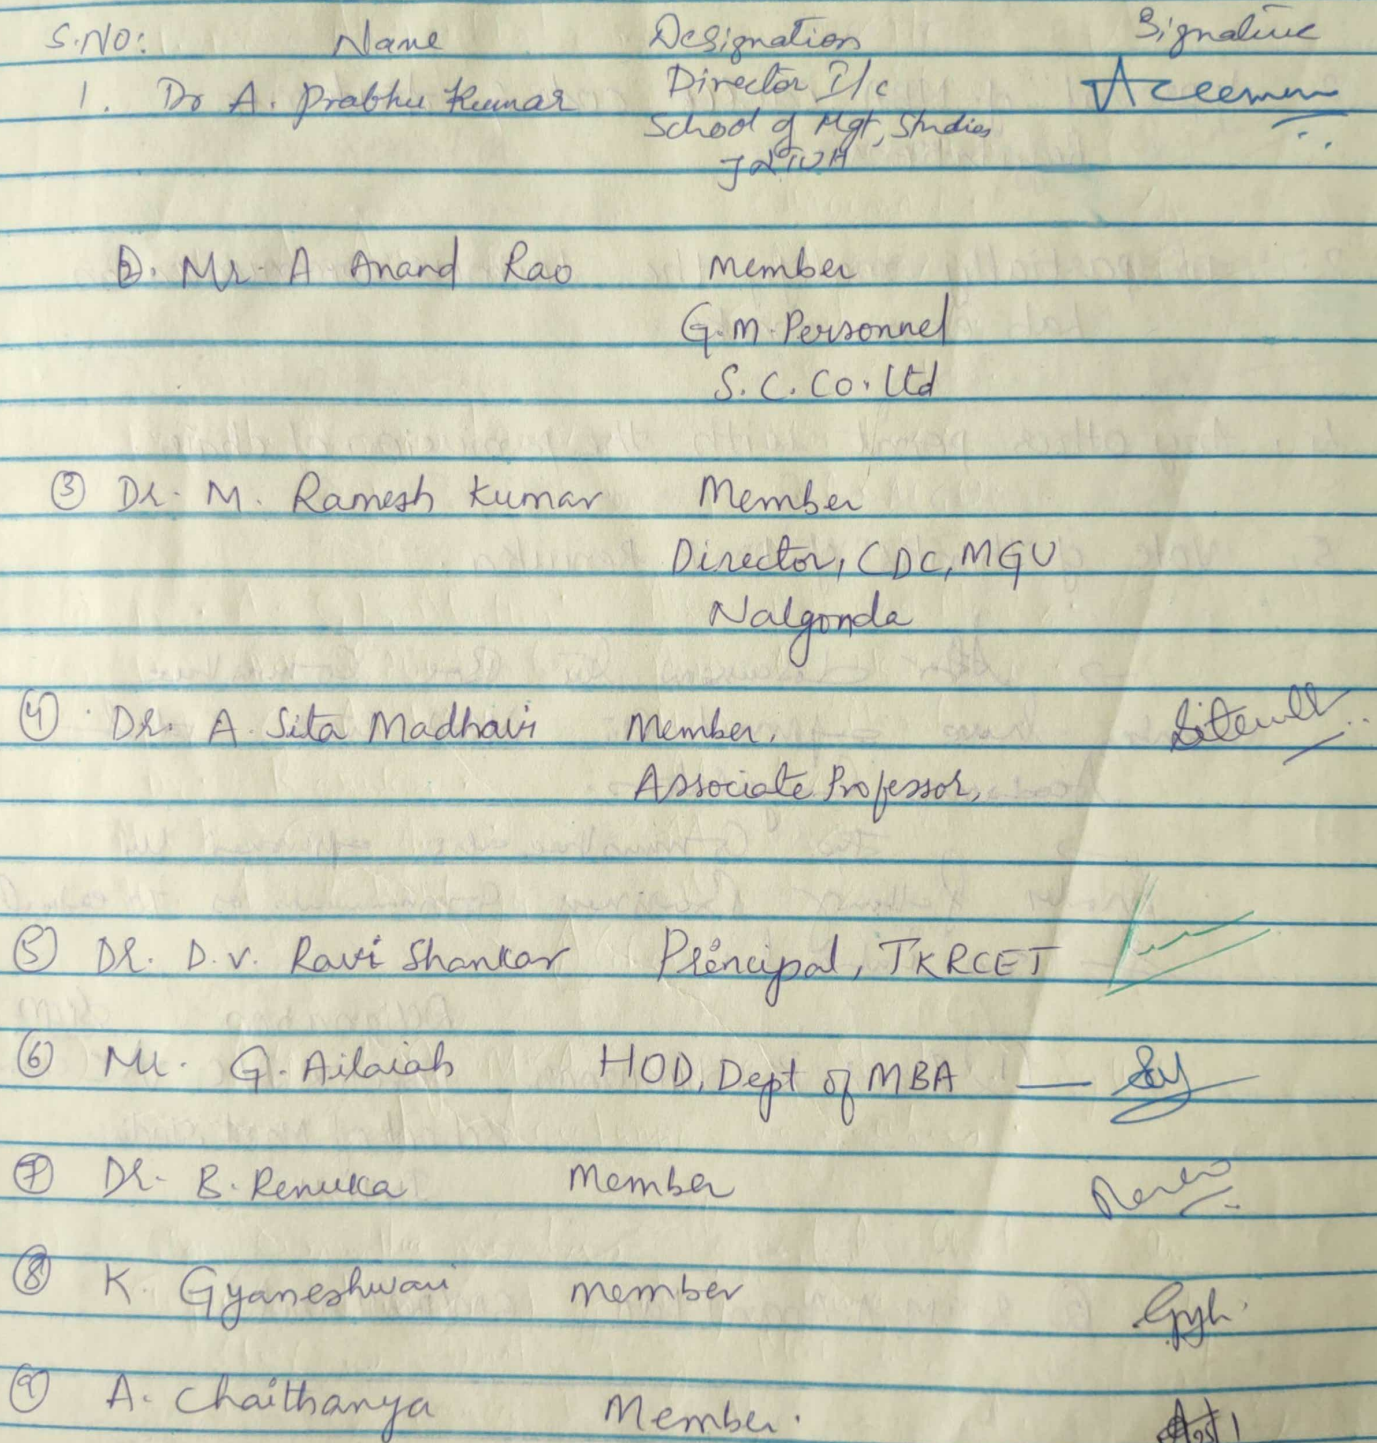 S.NO: Name Designation Signature
1. Dr A. Prabhu Kumar Director I/c
School of Mgt, Studies
JNTUH
2. Mr. A Anand Rao Member
G.M. Personnel
S.C. Co. Ltd
3 Dr. M. Ramesh Kumar Member
Director, CDC, MGU
Nalgonda
4 Dr. A. Sita Madhavi Member,
Associate Professor,
5 Dr. D.V. Ravi Shankar Principal, TKRCET
6 Mr. G. Ailaiah HOD, Dept of MBA —
7 Dr. B. Renuka Member
8 K. Gyaneshwari Member
9 A. Chaithanya Member.